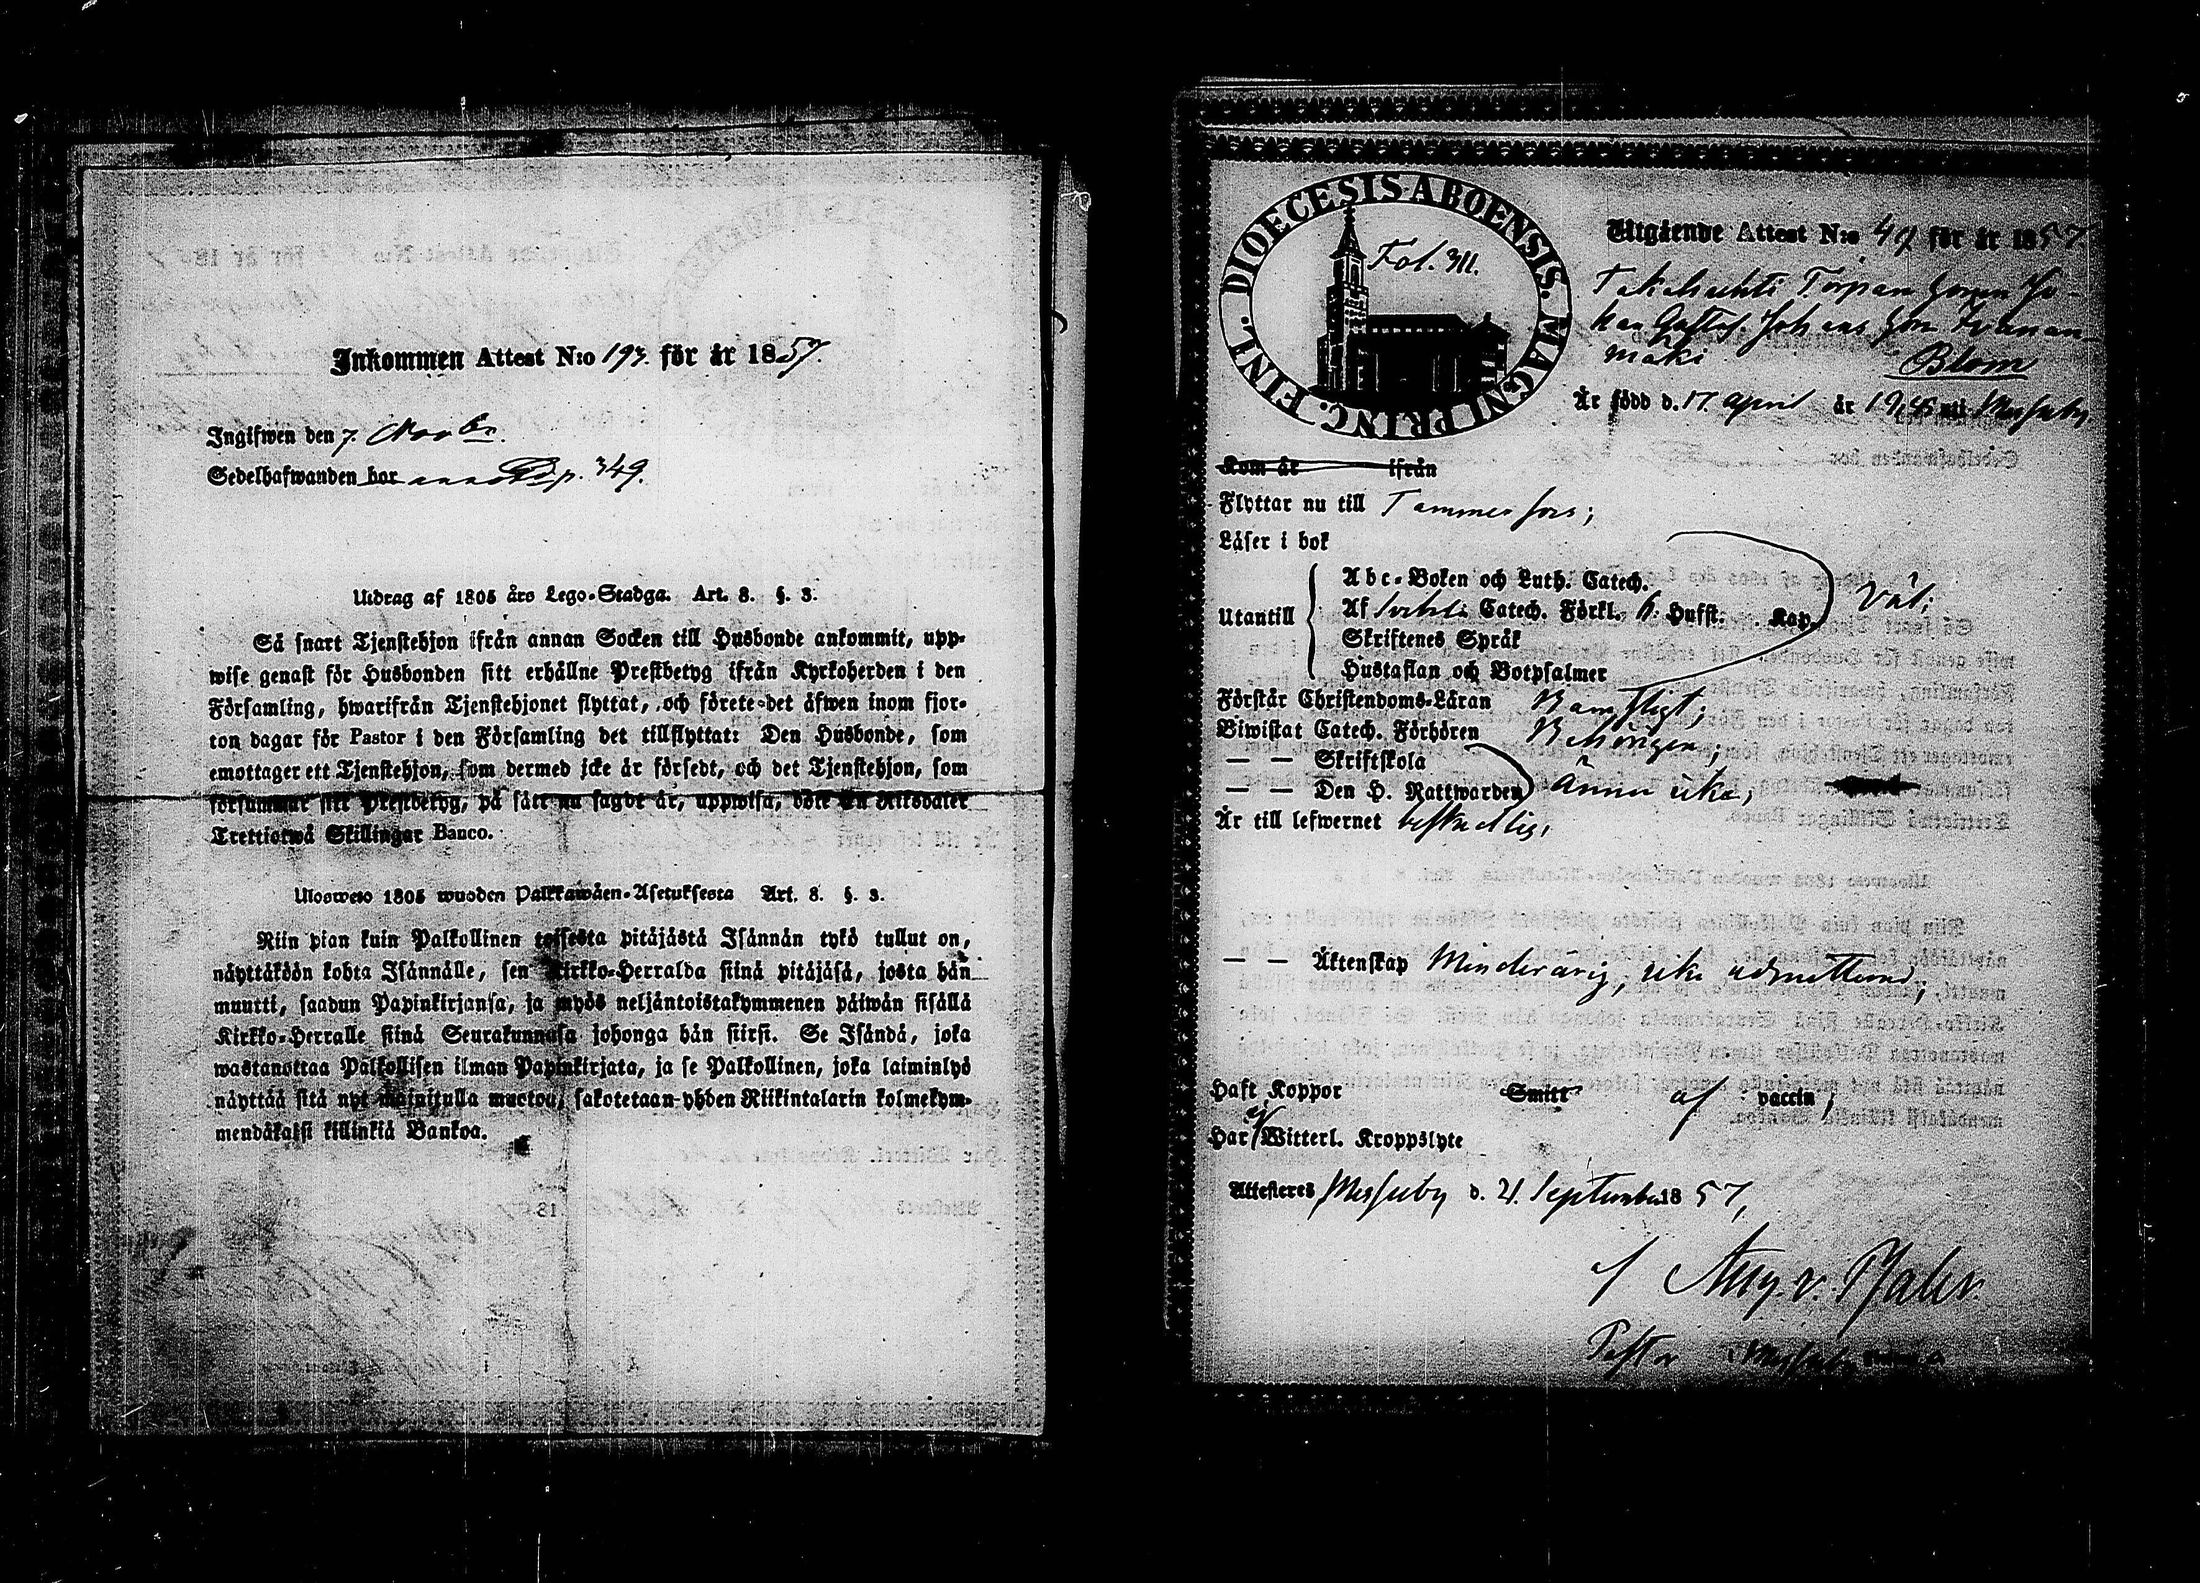 Inkommen Attest N:o 193. för år 1857.
Ingifwen den 7. Novbr.
Sedelhafwanden bor p. 349.
Utdrag af 1805 års Lego-Stadga. Art. 8. §. 3.
Så snart Tjenstehjon ifrån annan Socken till Husbonde ankommit, upp-
wise genast för Husbonden sitt erhållne Prestbetyg ifrån Kyrkoherden i den
Församling, hwarifrån Tjenstehjonet flyttat, och förete det äfwen inom fjor-
ton dagar för Pastor i den Församling det tillflyttat: Den Husbonde, som
emottager ett Tjenstehjon, som dermed icke är försedt, och det Tjenstehjon, som
försummar sitt Prestbetyg, på sätt nu sagdt är, uppwisa, böte En Riksdaler
Trettiotwå Skillingar Banco.
Ulosweto 1805 wuoden Palkkawäen-Asetuksesta Art. 8. §. 3.
Niin pian kuin Palkollinen toisesta pitäjästä Isännän tykö tullut on,
näyttäköön kohta Isännälle, sen Kirkko-Herralda siinä pitäjäsä, josta hän
muutti, saadun Papinkirjansa, ja myös neljäntoistakymmenen päiwän sisällä
Kirkko-Herralle siinä Seurakunnasa johonga hän siirsi. Se Isändä, joka
wastanottaa Palkollisen ilman Papinkirjata, ja se Palkollinen, joka laiminlyö
näyttää sitä nyt mainitulla muotoa, sakotetaan yhden Riikintalarin kolmekym-
mendäkaksi killinkiä Bankoa.
DIOECESIS ABOENSIS. MAGNI PRINC. FINL.
Fol. 311.
Utgående Attest N:o 49 för år 1857
Torpare sonen Jo-
han Gustaf Johans son
mäki Blom
Är född d. 17. April år 1845 uti Messuby.
Kom år ifrån
Flyttar nu till Tammerfors;
Läser i bok
Abc-Boken och Luth. Catech.
Utantill Af Catech. Förkl. 6. Hufst. Kap. Väl;
Skriftenes Språk
Hustaflan och Botpsalmer
Förstår Christendoms-Läran Barnsligt;
Biwistat Catech. Förhören Behörigen;
— — Skriftskola
— — Den H. Nattwarden ännu icke;
Är till lefwernet beskedlig,
— — Äktenskap Minderårig, icke admitterad;
Haft Koppor Smitt af vaccin;
Har ej Witterl. Kroppslyte
Attesteres Messuby d. 21. September 1857,
Aug. v. Pfaler.
Pastor Messuby